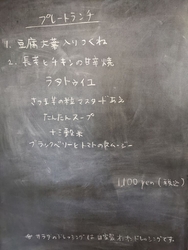 プレートランチ
1. 豆腐大葉入りつくね
2. 長芋とチキンの甘辛焼
ラタトゥイユ
さつま芋の粒マスタードあえ
たんたんスープ
十三穀米
ブランフベリーとトマトのスムージー
1,100 yen (税込)
※サラダのドレッシングは自家製
ドレッシングです。